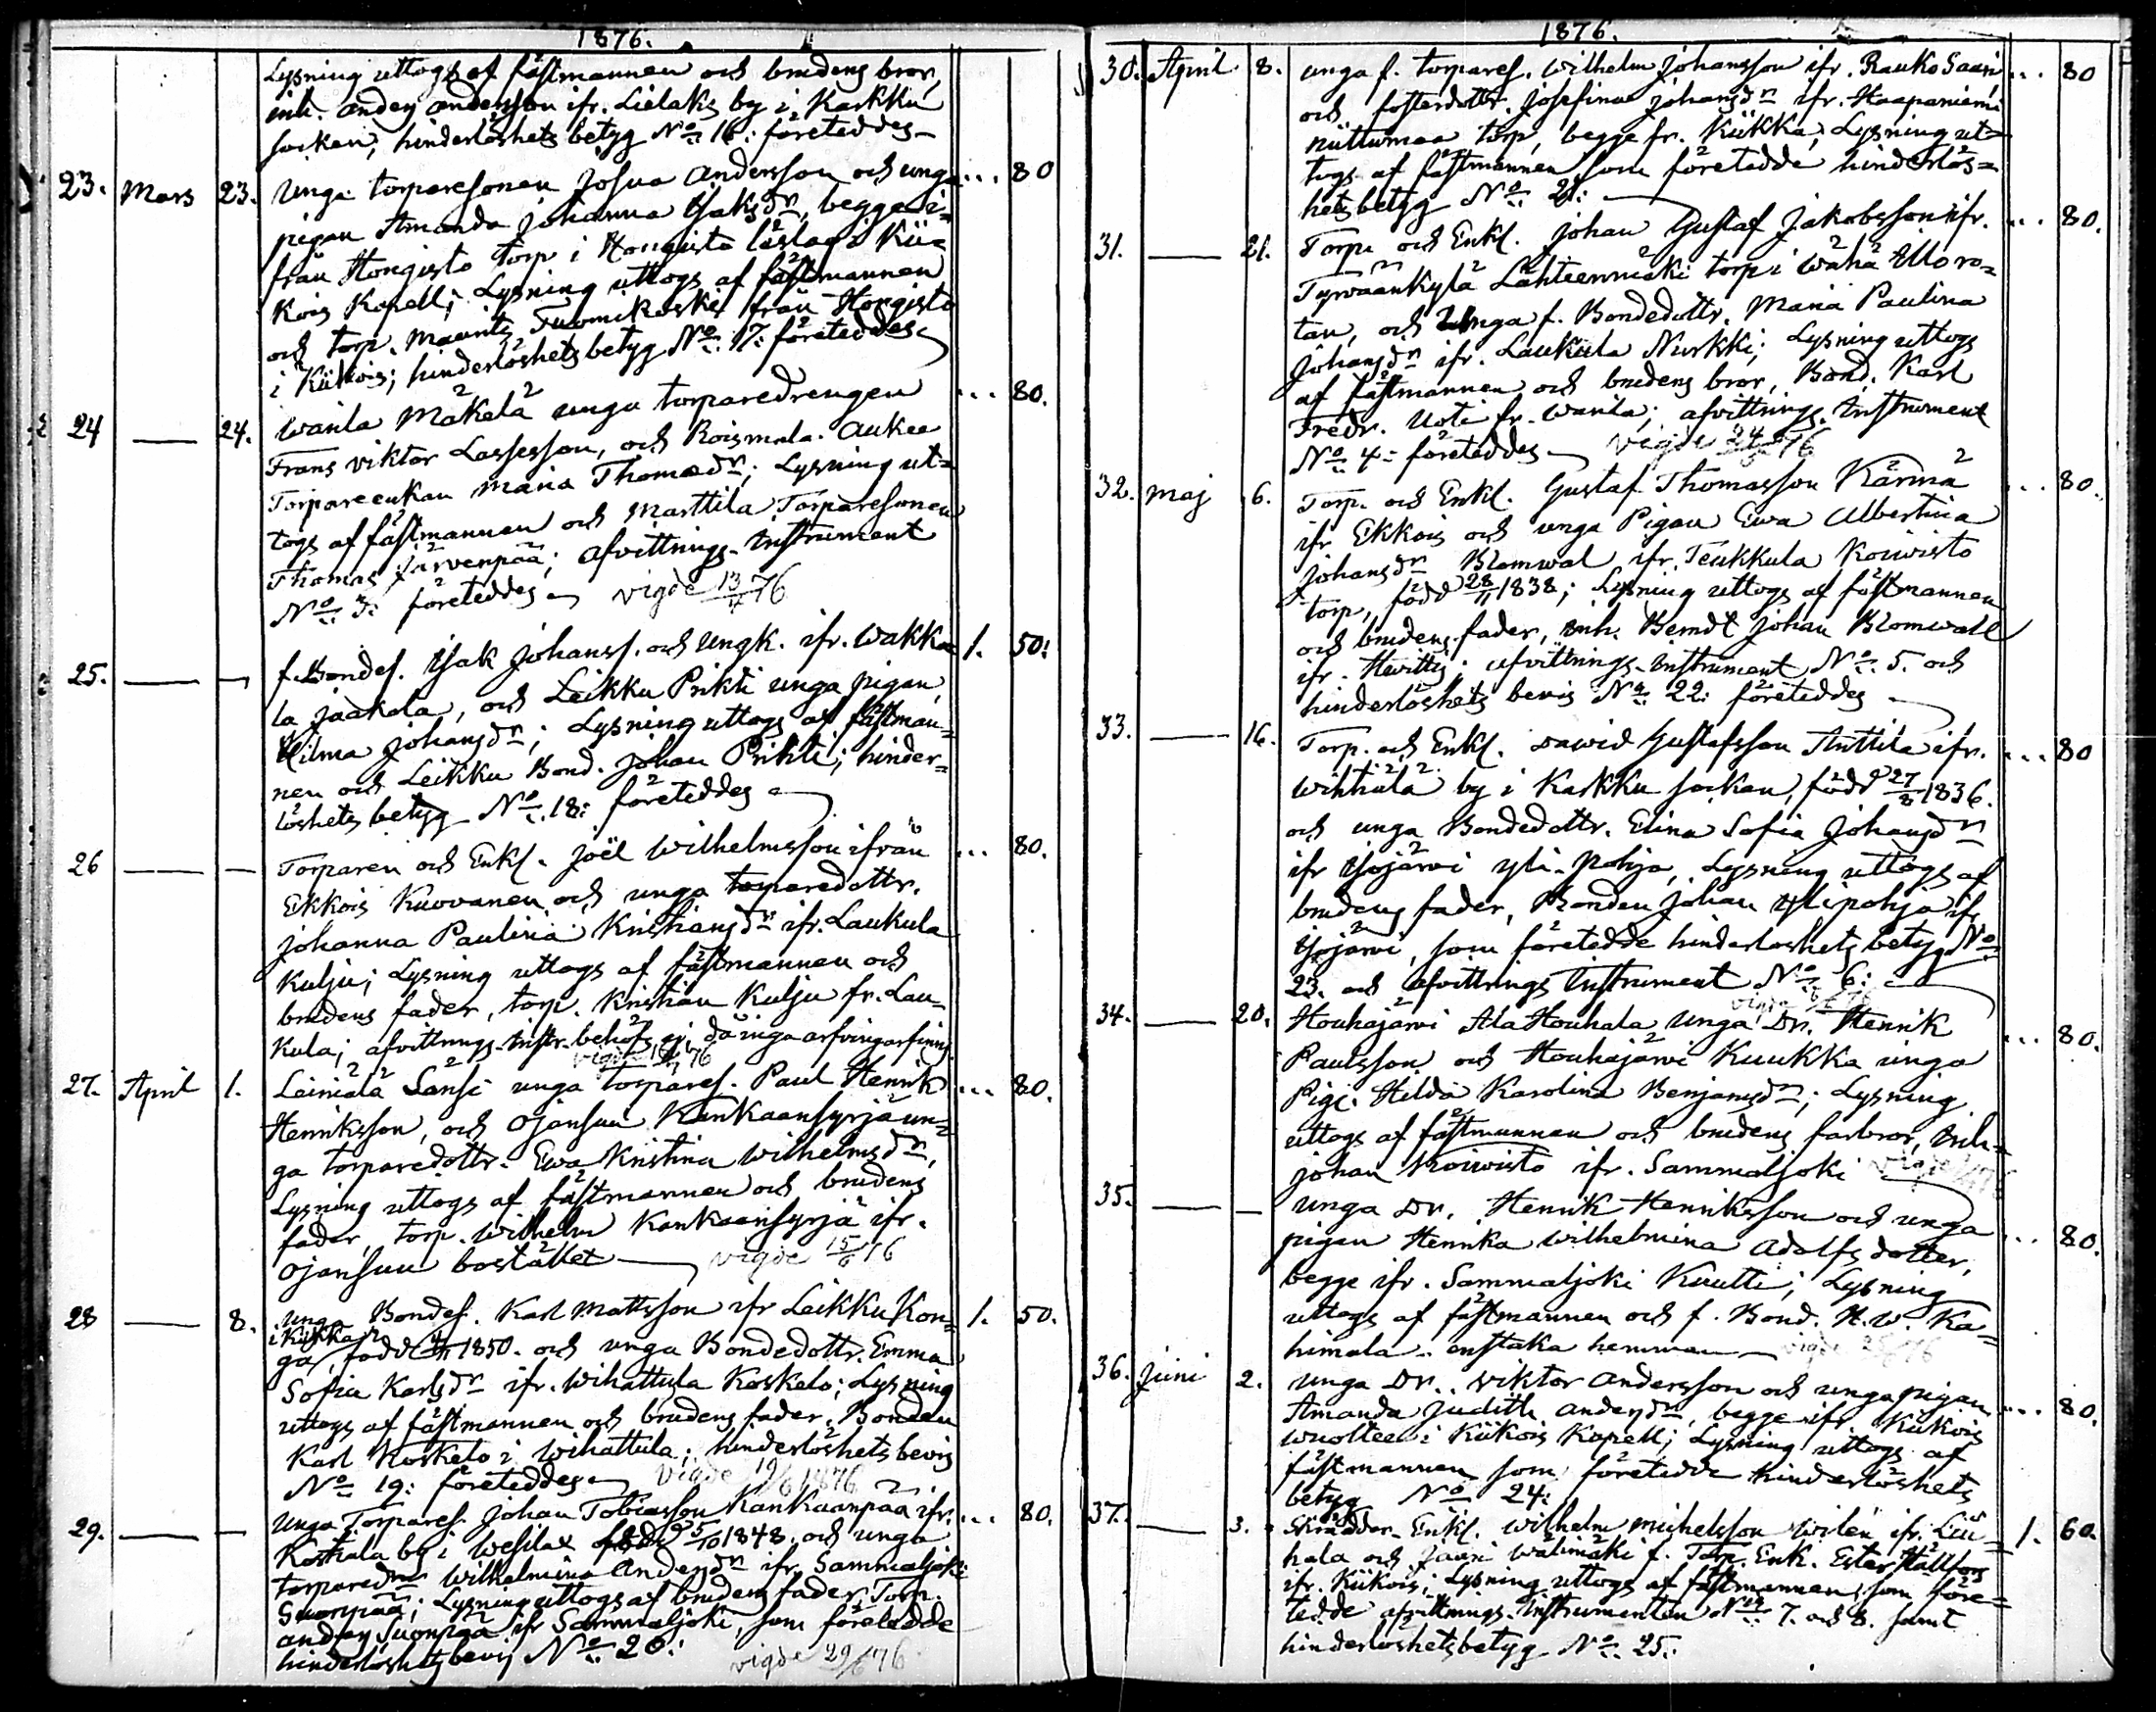 1876.
Lysning uttogs af fästmannen och brudens bror,
inh. Anders Andersson ifr. Lielaks by i Karkku
socken; hinderlöshets betyg No 16: företeddes
23. Mars 23. Unga torparesonen Josua Andersson och unga ... 80
pigan Amanda Johanna Isaksdr, begge i-
från Hongisto torp i Hongisto låslag i Kii-
kois Kapell; Lysning uttogs af fästmannen
och torp. Maurits Tuomikoski från Hongisto
i Kiikois; hinderlöshets betyg No 17: företeddes
24 — 24. Wanila Mäkelä unga torparedrengen ... 80.
Frans Viktor Lassesson, och Roismala Aukee
Torpareenkan Maria Thomædr; Lysning ut-
togs af fästmannen och Marttila Torparesonen
Thomas Järvenpää; Afvittrings-Instrument
No 3: företeddes vigde 13/4 76
25. — — f. Bondes. Isak Johanss. och Ungk. ifr. Wakka- 1. 50:
la Jaakola, och Leikku Prihti unga pigan,
Hilma Johansdr; Lysning uttogs af fästman-
nen och Leikku Bond. Johan Prihti; hinder-
löshets betyg No 18: företeddes
26 — — Torparen och Enkl. Joël Wilhelmsson ifrån ... 80.
Ekkois Kuovanen och unga torparedottr.
Johanna Paulina Kristiansdr ifr. Laukula
Kulju; Lysning uttogs af fästmannen och
brudens fader, torp. Kristian Kulju fr. Lau-
kula; afvittrings-Instr. behöfs ej, då inga arfvingar finnas
vigde 76
27. April 1. Leiniälä Sansi unga torpares. Paul Henrik ... 80.
Henriksson, och Ojansuu Kankaansyrjä un-
ga torparedottr. Ewa Kristina Wilhelmsdr,
Lysning uttogs af fästmannen och brudens
fader, torp. Wilhelm Kankaansyrjä ifr.
Ojansuu bostället — vigde 15/6 76
28 — 8. unga Bondes. Karl Mattsson ifr Leikku Kon- 1. 50.
i Kiikka
ga, född 1850. och unga Bondedottr. Emma
Sofia Karlsdr ifr. Wihattula Koskelo; Lysning
uttogs af fästmannen och brudens fader, Bonden
Karl Koskelo i Wihattula; hinderlöshets bevis
No 19: företeddes vigde 19/6 1876
29. — — Unga Torpares. Johan Tobiasson Kankaanpää ifr. ... 80.
Koskala by i Wesilax född 5/10 1848. och unga
torparedr Wilhelmina Andersdr ifr Sammaljoki
Suonpää; Lysning uttogs af brudens fader, Torp.
Anders Suonpää ifr Sammaljoki, som företedde
hinderlöshets bevis No 20: vigde 29/6 76
1876.
30. April 8. unga f. torpares. Wilhelm Johansson ifr. Rauko Saari ... 80
och fosterdottr. Josefina Johansdr ifr. Haapaniemi
niittumaa torp, begge fr. Kiikka, Lysning ut-
togs af fästmannen som företedde hinderlös-
hets betyg No 21:
31. — 21. Torp. och Enkl. Johan Gustaf Jakobsson ifr. ... 80.
Tyrväänkylä Lähteenmäki torp i Wähä Moro-
tan, och Unga f. Bondedottr. Maria Paulina
Johansdr ifr. Laukula Nurkki; Lysning uttogs
af fästmannen och brudens bror, Bond. Karl
Fredr. Uoti fr. Wanila; afvittrings-Instrument
No 4: företeddes vigde 76
32. Maj 6. Torp. och Enkl. Gustaf Thomasson Kärmä ... 80.
ifr Ekkois och unga Pigan Ewa Albertina
Johansdr Blomwal ifr. Teukkula Koiwisto
torp, född 28/11 1838; Lysning uttogs af fästmannen
och brudens fader, inh. Berndt Johan Blomwall
ifr. Hvittis; afvittrings-Instrument No 5. och
hinderlöshets bevis No 22: företeddes
33. — 16. Torp. och Enkl. Dawid Gustafsson Anttila ifr. ... 80
Wihtiälä by i Karkku sockan, född 27/8 1836.
och unga Bondedottr. Elina Sofia Johansdr
ifr Isojärvi yli-pohja, Lysning uttogs af
brudens fader, Bonden Johan Ylipohja ifr
Isojärvi, som företedde hinderloshets betyg No
23. och afvittrings Instrument No 6:
34. — 20. Houhajärvi Ala Houhala unga Dr. Henrik ... 80.
Paulsson och Houhajärvi Kuukka unga
Pig. Hilda Karolina Benjamsdr; Lysning
uttogs af fästmannen och brudens farbror, Inh.
Johan Koiwisto ifr. Sammaljoki
35. — — unga Dr. Henrik Henriksson och unga ... 80.
pigan Henrika Wilhelmina Adolfs dotter,
begge ifr. Sammaljoki Kuutti; Lysning
uttogs af fästmannen och f. Bond. H. W. Ka-
himala enstaka hemman
36. Juni 2. unga Dr. Viktor Andersson och unga pigan ... 80.
Amanda Judith Andersdr, begge ifr Kiikois
Wuoltee i Kiikois Kapell; Lysning uttogs af
fästmannen som företedde hinderlöshets
betyg No 24:
37. — 3. Skräddar-Enkl. Wilhelm Michelsson Wilén ifr. Liu- 1. 60.
hala och Jaari Wälimäki f. Torp. Enk. Ester Hällfors
ifr. Kiikois; Lysning uttogs af fästmannen, som före-
tedde afvittrings-Instrumenten No 7. och 8. samt
hinderlöshetsbetyg No 25: